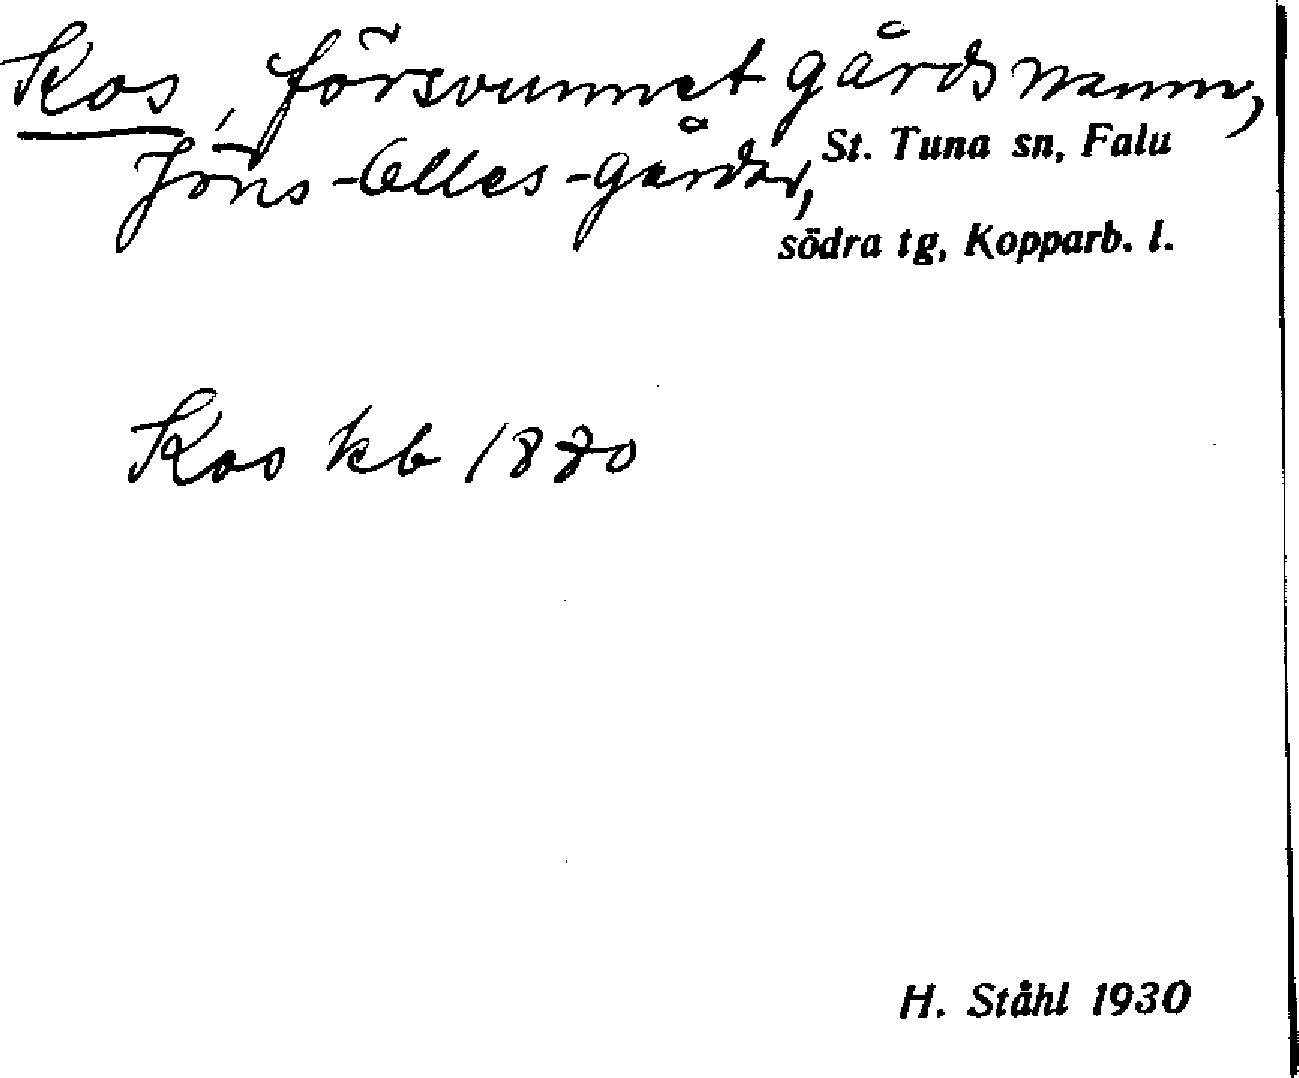 Kos, försvunnet gårdsnamn,
Jöns-Olles-gården,
St. Tuna sn, Falu
södra tg, Kopparb. l.
Kos kb 1870
H. Ståhl 1930